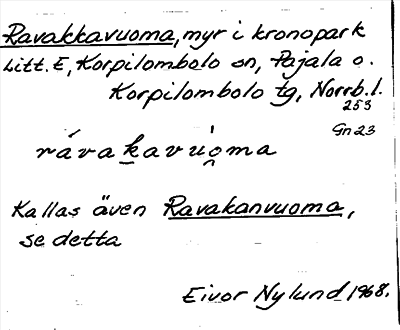 Ravakkavuoma, myr i kronopark
Litt. E, Korpilombolo sn, Pajala o.
Korpilombolo tg, Norrb. l.
253
Gn 23
rávakavuoma
Kallas även Ravakanvuoma,
se detta
Eivor Nylund 1968.